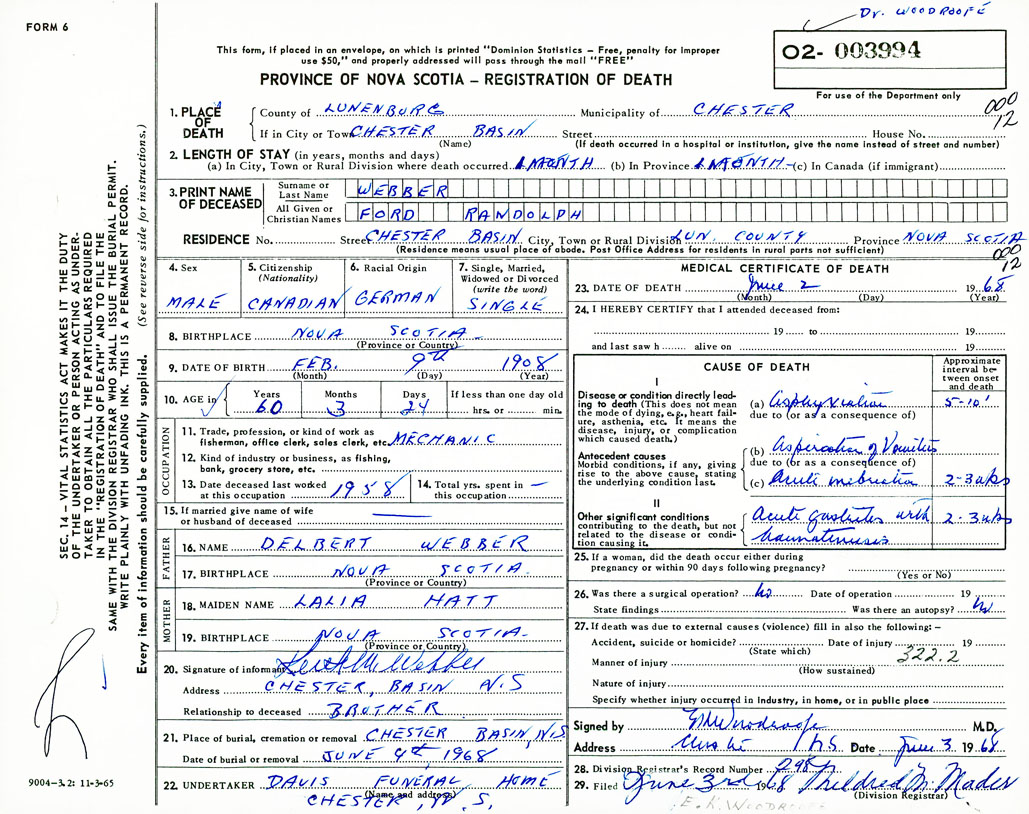 Dr. WOODROOFE
FORM 6
This form, if placed in an envelope, on which is printed "Dominion Statistics – Free, penalty for improper
use $50," and properly addressed will pass through the mail "FREE"
O2- 003994
PROVINCE OF NOVA SCOTIA – REGISTRATION OF DEATH
For use of the Department only
000
12
1. PLACE OF DEATH County of LUNENBURG Municipality of CHESTER
If in City or Town CHESTER BASIN Street House No.
(Name) (If death occurred in a hospital or institution, give the name instead of street and number)
2. LENGTH OF STAY (in years, months and days)
(a) In City, Town or Rural Division where death occurred 1 MONTH (b) In Province 1 MONTH (c) In Canada (if immigrant)
3. PRINT NAME OF DECEASED Surname or Last Name WEBBER
All Given or Christian Names FORD RANDOLPH
RESIDENCE No. Street CHESTER BASIN City, Town or Rural Division LUN. COUNTY Province NOVA SCOTIA
(Residence means usual place of abode. Post Office Address for residents in rural parts not sufficient)
000
12
4. Sex MALE
5. Citizenship (Nationality) CANADIAN
6. Racial Origin GERMAN
7. Single, Married, Widowed or Divorced (write the word) SINGLE
8. BIRTHPLACE NOVA SCOTIA
(Province or Country)
9. DATE OF BIRTH FEB. 9th 1908
(Month) (Day) (Year)
10. AGE in Years 60 Months 3 Days 24 If less than one day old hrs. or min.
OCCUPATION
11. Trade, profession, or kind of work as
fisherman, office clerk, sales clerk, etc. MECHANIC
12. Kind of industry or business, as fishing,
bank, grocery store, etc.
13. Date deceased last worked at this occupation 1958
14. Total yrs. spent in this occupation —
15. If married give name of wife
or husband of deceased —
FATHER
16. NAME DELBERT WEBBER
17. BIRTHPLACE NOVA SCOTIA
(Province or Country)
MOTHER
18. MAIDEN NAME LALIA HATT
19. BIRTHPLACE NOVA SCOTIA
(Province or Country)
20. Signature of informant Keith M. Webber
Address CHESTER, BASIN N.S
Relationship to deceased BROTHER
21. Place of burial, cremation or removal CHESTER BASIN, N.S
Date of burial or removal JUNE 4th, 1968
22. UNDERTAKER DAVIS FUNERAL HOME
(Name and address)
CHESTER, N.S.
MEDICAL CERTIFICATE OF DEATH
23. DATE OF DEATH June 2 1968
(Month) (Day) (Year)
24. I HEREBY CERTIFY that I attended deceased from:
19 to 19
and last saw h alive on 19
CAUSE OF DEATH
Approximate interval between onset and death
I
Disease or condition directly leading to death (This does not mean the mode of dying, e.g., heart failure, asthenia, etc. It means the disease, injury, or complication which caused death.)
(a) Asphyxiation 5-10'
due to (or as a consequence of)
Antecedent causes
Morbid conditions, if any, giving rise to the above cause, stating the underlying condition last.
(b) Aspiration of Vomitus
due to (or as a consequence of)
(c) Acute inebriation 2-3 wks
II
Other significant conditions
contributing to the death, but not related to the disease or condition causing it.
Acute gastritis with 2-3 wks
haematemesis
25. If a woman, did the death occur either during
pregnancy or within 90 days following pregnancy?
(Yes or No)
26. Was there a surgical operation? No Date of operation 19
State findings Was there an autopsy? No
27. If death was due to external causes (violence) fill in also the following: –
Accident, suicide or homicide? Date of injury 19
(State which)
322.2
Manner of injury
(How sustained)
Nature of injury
Specify whether injury occurred in Industry, in home, or in public place
Signed by M.D.
Address Chester N.S. Date June 3 1968
28. Division Registrar's Record Number
29. Filed June 3rd 1968 Mildred M. Mader
(Division Registrar)
E. K. WOODROOFE
SEC. 14 – VITAL STATISTICS ACT MAKES IT THE DUTY
OF THE UNDERTAKER OR PERSON ACTING AS UNDER-
TAKER TO OBTAIN ALL THE PARTICULARS REQUIRED
IN THE "REGISTRATION OF DEATH" AND TO FILE THE
SAME WITH THE DIVISION REGISTRAR WHO SHALL ISSUE THE BURIAL PERMIT.
WRITE PLAINLY WITH UNFADING INK. THIS IS A PERMANENT RECORD.
Every item of information should be carefully supplied. (See reverse side for instructions.)
9004-3.2: 11-3-65